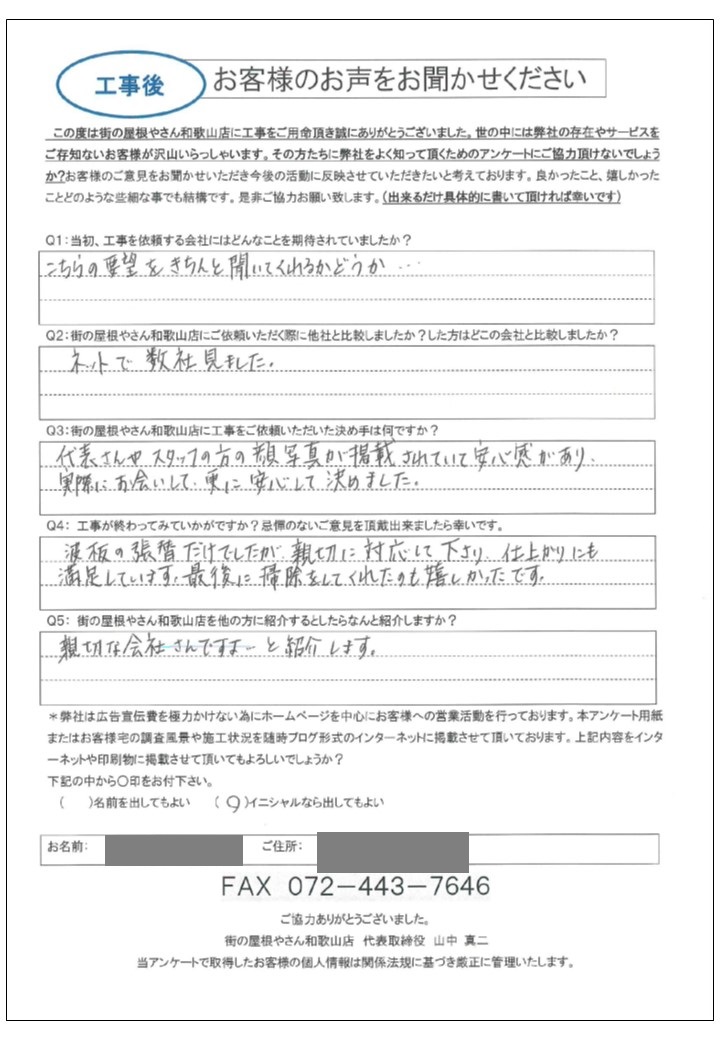 工事後
お客様のお声をお聞かせください
この度は街の屋根やさん和歌山店に工事をご用命頂き誠にありがとうございました。世の中には弊社の存在やサービスを
ご存知ないお客様が沢山いらっしゃいます。その方たちに弊社をよく知って頂くためのアンケートにご協力頂けないでしょう
か?お客様のご意見をお聞かせいただき今後の活動に反映させていただきたいと考えております。良かったこと、嬉しかった
ことどのような些細な事でも結構です。是非ご協力お願い致します。(出来るだけ具体的に書いて頂ければ幸いです)
Q1:当初、工事を依頼する会社にはどんなことを期待されていましたか?
こちらの要望をきちんと聞いてくれるかどうか…
Q2:街の屋根やさん和歌山店にご依頼いただく際に他社と比較しましたか?した方はどこの会社と比較しましたか?
ネットで数社見ました。
Q3:街の屋根やさん和歌山店に工事をご依頼いただいた決め手は何ですか?
代表さんやスタッフの方の顔写真が掲載されていて安心感があり、
実際にお会いして、更に安心して決めました。
Q4: 工事が終わってみていかがですか?忌憚のないご意見を頂戴出来ましたら幸いです。
波板の張替だけでしたが、親切に対応して下さり、仕上がりにも
満足しています。最後に掃除をしてくれたのも嬉しかったです。
Q5: 街の屋根やさん和歌山店を他の方に紹介するとしたらなんと紹介しますか?
親切な会社さんですよーと紹介します。
*弊社は広告宣伝費を極力かけない為にホームページを中心にお客様への営業活動を行っております。本アンケート用紙
またはお客様宅の調査風景や施工状況を随時ブログ形式のインターネットに掲載させて頂いております。上記内容をインタ
ーネットや印刷物に掲載させて頂いてもよろしいでしょうか?
下記の中から〇印をお付下さい。
( )名前を出してもよい (○)イニシャルなら出してもよい
お名前: ご住所:
FAX 072-443-7646
ご協力ありがとうございました。
街の屋根やさん和歌山店 代表取締役 山中 真二
当アンケートで取得したお客様の個人情報は関係法規に基づき厳正に管理いたします。